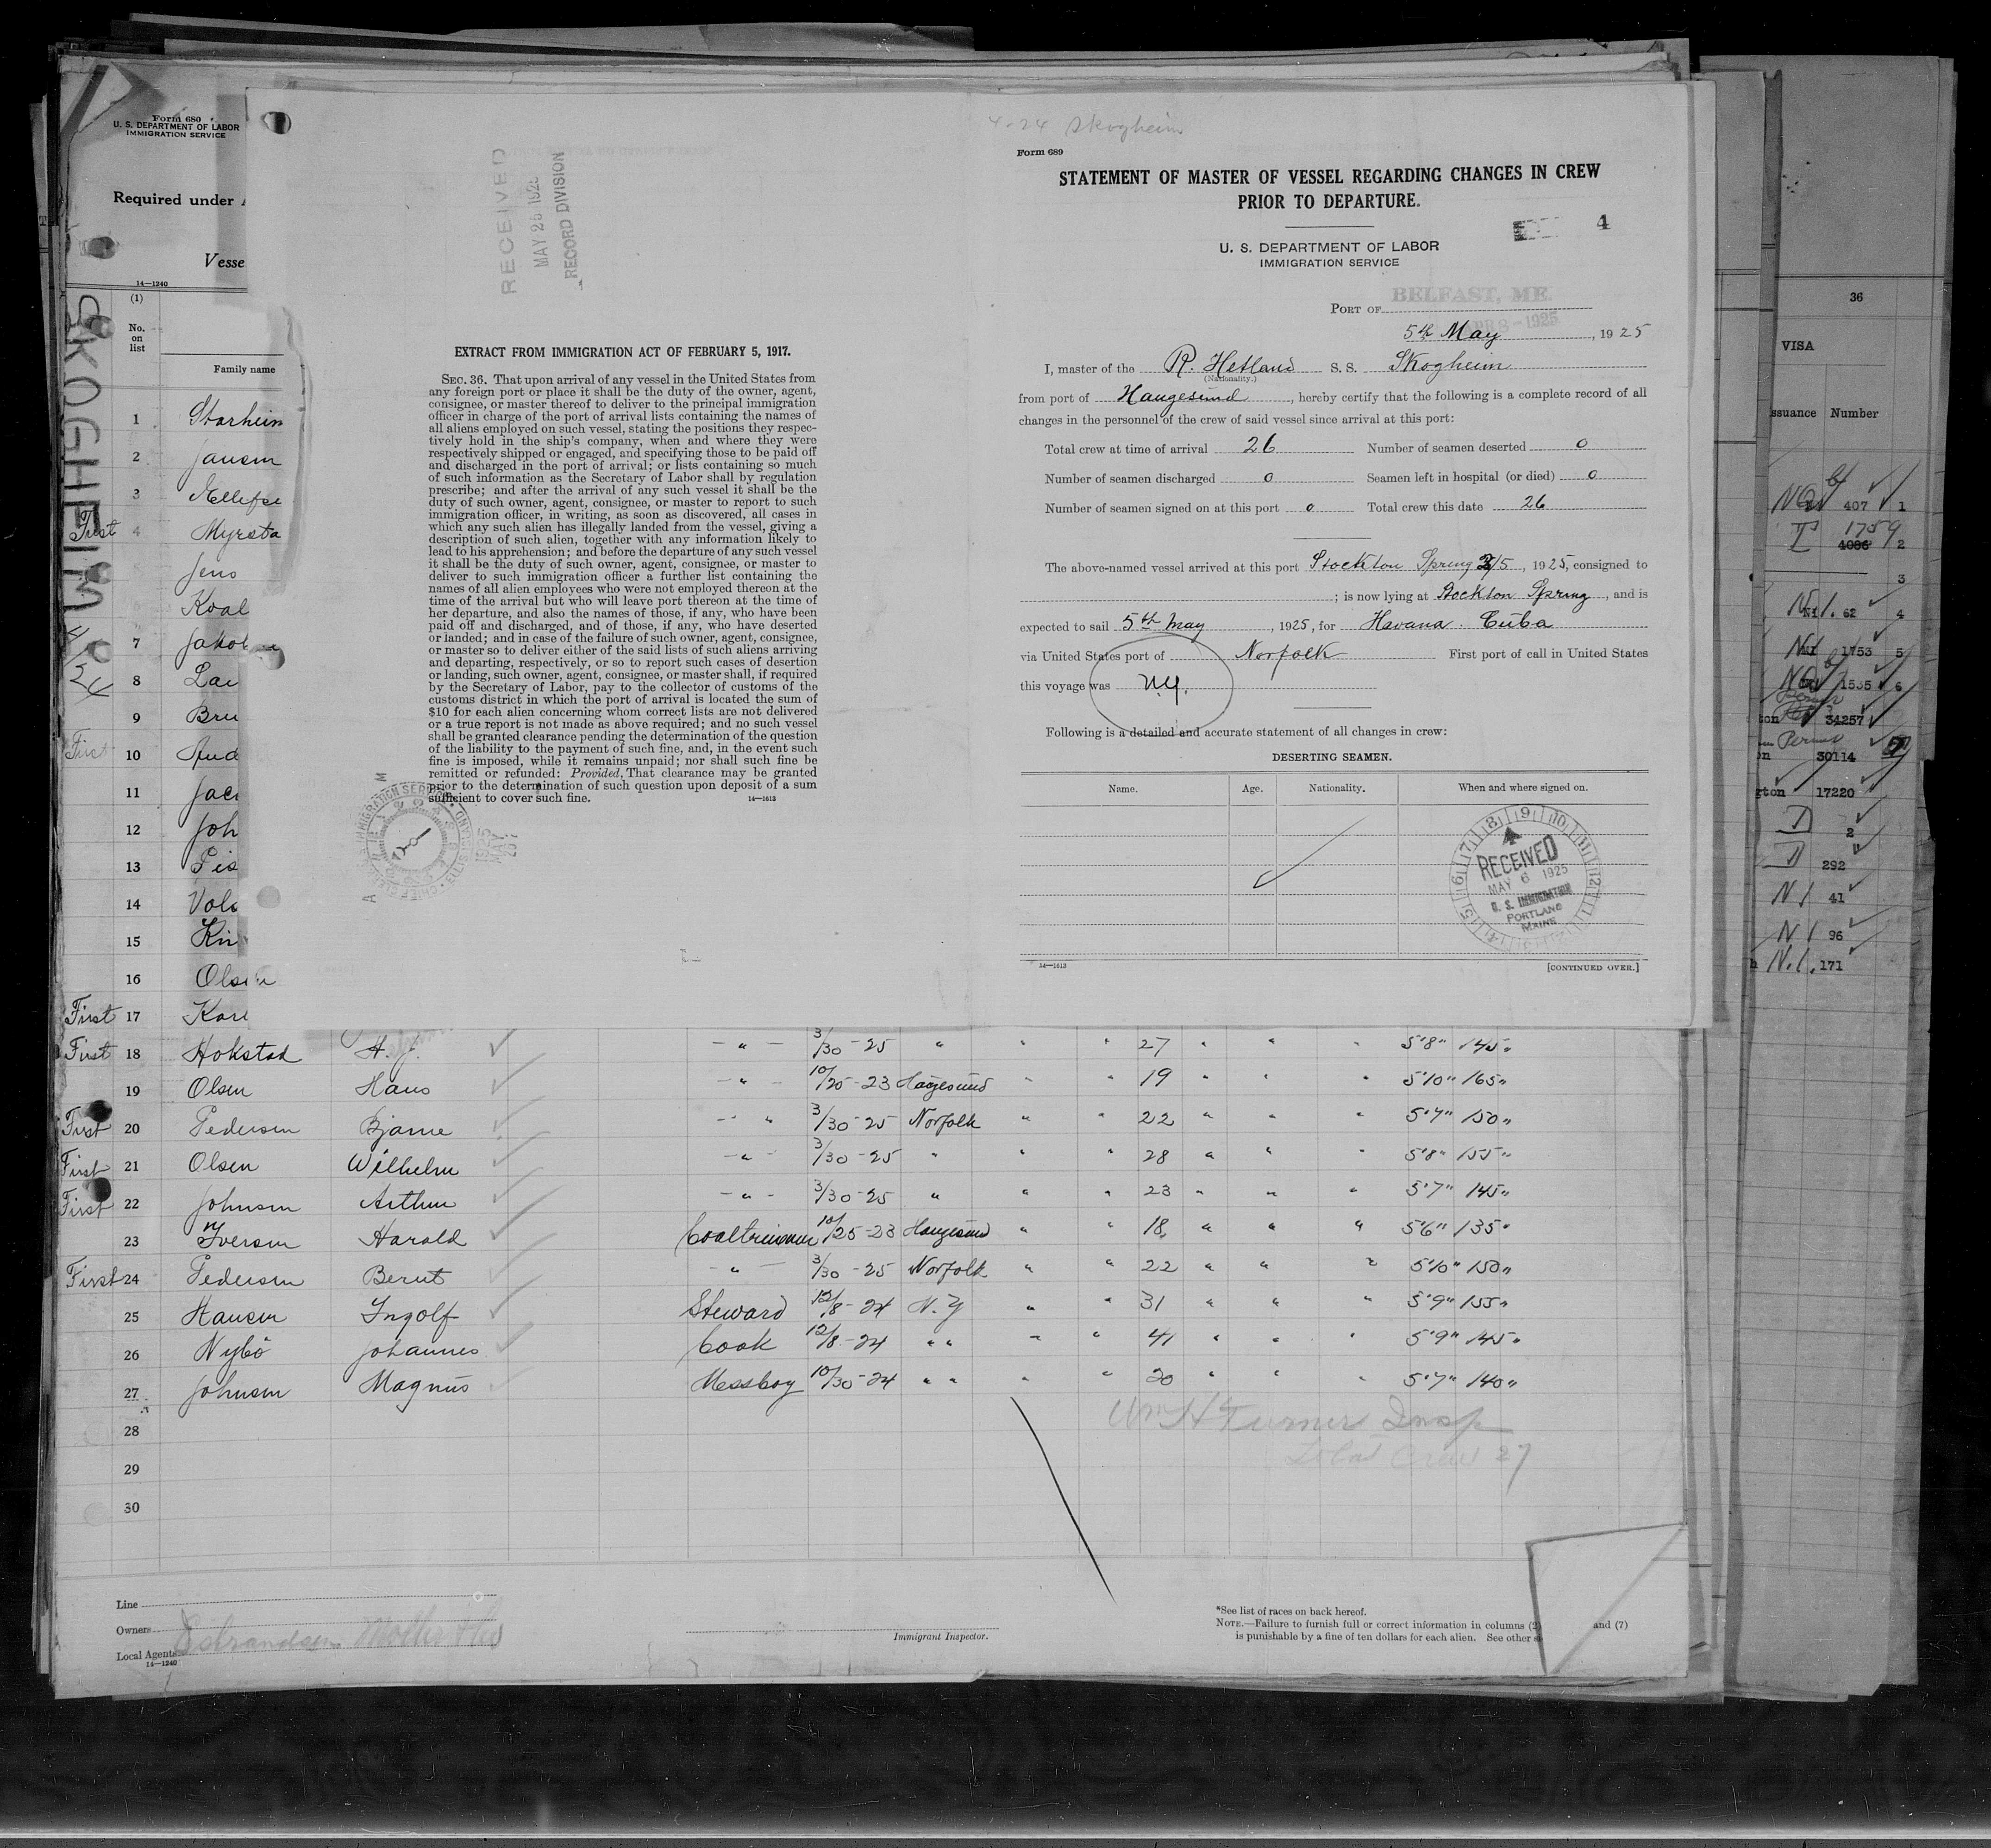 Form 680
U. S. DEPARTMENT OF LABOR
IMMIGRATION SERVICE
Required under
Vesse
14—1240
(1)
No.
on
list
Family name
SKOGHEIM 4/24
1 Storheim
2 Jansen
3 Ellefse
First 4 Myrsta
Jens
Koal
7 Jakob
8 Lau
9 Bru
First 10
11 Jac
12 Joh
13
14 Vol
15
16 Olsen
First 17 Kar
RECEIVED
MAY 25 1925
RECORD DIVISION
EXTRACT FROM IMMIGRATION ACT OF FEBRUARY 5, 1917.
SEC. 36. That upon arrival of any vessel in the United States from
any foreign port or place it shall be the duty of the owner, agent,
consignee, or master thereof to deliver to the principal immigration
officer in charge of the port of arrival lists containing the names of
all aliens employed on such vessel, stating the positions they respec-
tively hold in the ship's company, when and where they were
respectively shipped or engaged, and specifying those to be paid off
and discharged in the port of arrival; or lists containing so much
of such information as the Secretary of Labor shall by regulation
prescribe; and after the arrival of any such vessel it shall be the
duty of such owner, agent, consignee, or master to report to such
immigration officer, in writing, as soon as discovered, all cases in
which any such alien has illegally landed from the vessel, giving a
description of such alien, together with any information likely to
lead to his apprehension; and before the departure of any such vessel
it shall be the duty of such owner, agent, consignee, or master to
deliver to such immigration officer a further list containing the
names of all alien employees who were not employed thereon at the
time of the arrival but who will leave port thereon at the time of
her departure, and also the names of those, if any, who have been
paid off and discharged, and of those, if any, who have deserted
or landed; and in case of the failure of such owner, agent, consignee,
or master so to deliver either of the said lists of such aliens arriving
and departing, respectively, or so to report such cases of desertion
or landing, such owner, agent, consignee, or master shall, if required
by the Secretary of Labor, pay to the collector of customs of the
customs district in which the port of arrival is located the sum of
$10 for each alien concerning whom correct lists are not delivered
or a true report is not made as above required; and no such vessel
shall be granted clearance pending the determination of the question
of the liability to the payment of such fine, and, in the event such
fine is imposed, while it remains unpaid; nor shall such fine be
remitted or refunded: Provided, That clearance may be granted
prior to the determination of such question upon deposit of a sum
sufficient to cover such fine.
14—1613
4-24 Skogheim
Form 689
STATEMENT OF MASTER OF VESSEL REGARDING CHANGES IN CREW
PRIOR TO DEPARTURE.
4
U. S. DEPARTMENT OF LABOR
IMMIGRATION SERVICE
BELFAST, ME.
PORT OF
5th May, 1925
I, master of the R. Hetland S. S. Skogheim
(Nationality.)
from port of Haugesund, hereby certify that the following is a complete record of all
changes in the personnel of the crew of said vessel since arrival at this port:
Total crew at time of arrival 26 Number of seamen deserted 0
Number of seamen discharged 0 Seamen left in hospital (or died) 0
Number of seamen signed on at this port 0 Total crew this date 26
The above-named vessel arrived at this port Stockton Spring 2/5, 1925, consigned to
; is now lying at Stockton Spring, and is
expected to sail 5th May, 1925, for Havana. Cuba
via United States port of Norfolk First port of call in United States
this voyage was N.Y.
Following is a detailed and accurate statement of all changes in crew:
DESERTING SEAMEN.
Name. Age. Nationality. When and where signed on.
RECEIVED
MAY 6 1925
U. S. IMMIGRATION
PORTLAND
MAINE
14—1613
[CONTINUED OVER.]
First 18 Hokstad H. J. — " — 3/30-25 " " " 27 " " " 5'8" 145"
19 Olsen Hans — " — 10/25-23 Haugesund " " 19 " " " 5'10" 165"
First 20 Pedersen Bjarne — " 3/30-25 Norfolk " " 22 " " " 5'7" 150"
First 21 Olsen Wilhelm — " — 3/30-25 " " " 28 " " " 5'8" 155"
First 22 Johnsen Arthur — " — 3/30-25 " " " 23 " " " 5'7" 145"
23 Iversen Harald Coaltrimmer 10/25-23 Haugesund " " 18 " " " 5'6" 135"
First 24 Pedersen Bernt — " — 3/30-25 Norfolk " " 22 " " " 5'10" 150"
25 Hansen Ingolf Steward 12/8-24 N.Y " " 31 " " " 5'9" 155"
26 Nybö Johannes Cook 12/8-24 " " " " 41 " " " 5'9" 145"
27 Johnsen Magnus Messboy 10/30-24 " " " " 20 " " " 5'7" 140"
28
29
30
Wm H Turner Insp
Total Crew 27
Line
Owners
Local Agents
14—1240
Immigrant Inspector.
*See list of races on back hereof.
NOTE.—Failure to furnish full or correct information in columns (2) and (7)
is punishable by a fine of ten dollars for each alien. See other s
36
VISA
ssuance Number
407 1
1759
4086 2
3
N.I. 62 4
1753 5
1535 6
ton 34257
30114
gton 17220
2
292
N I 41
N I 96
N.I. 171